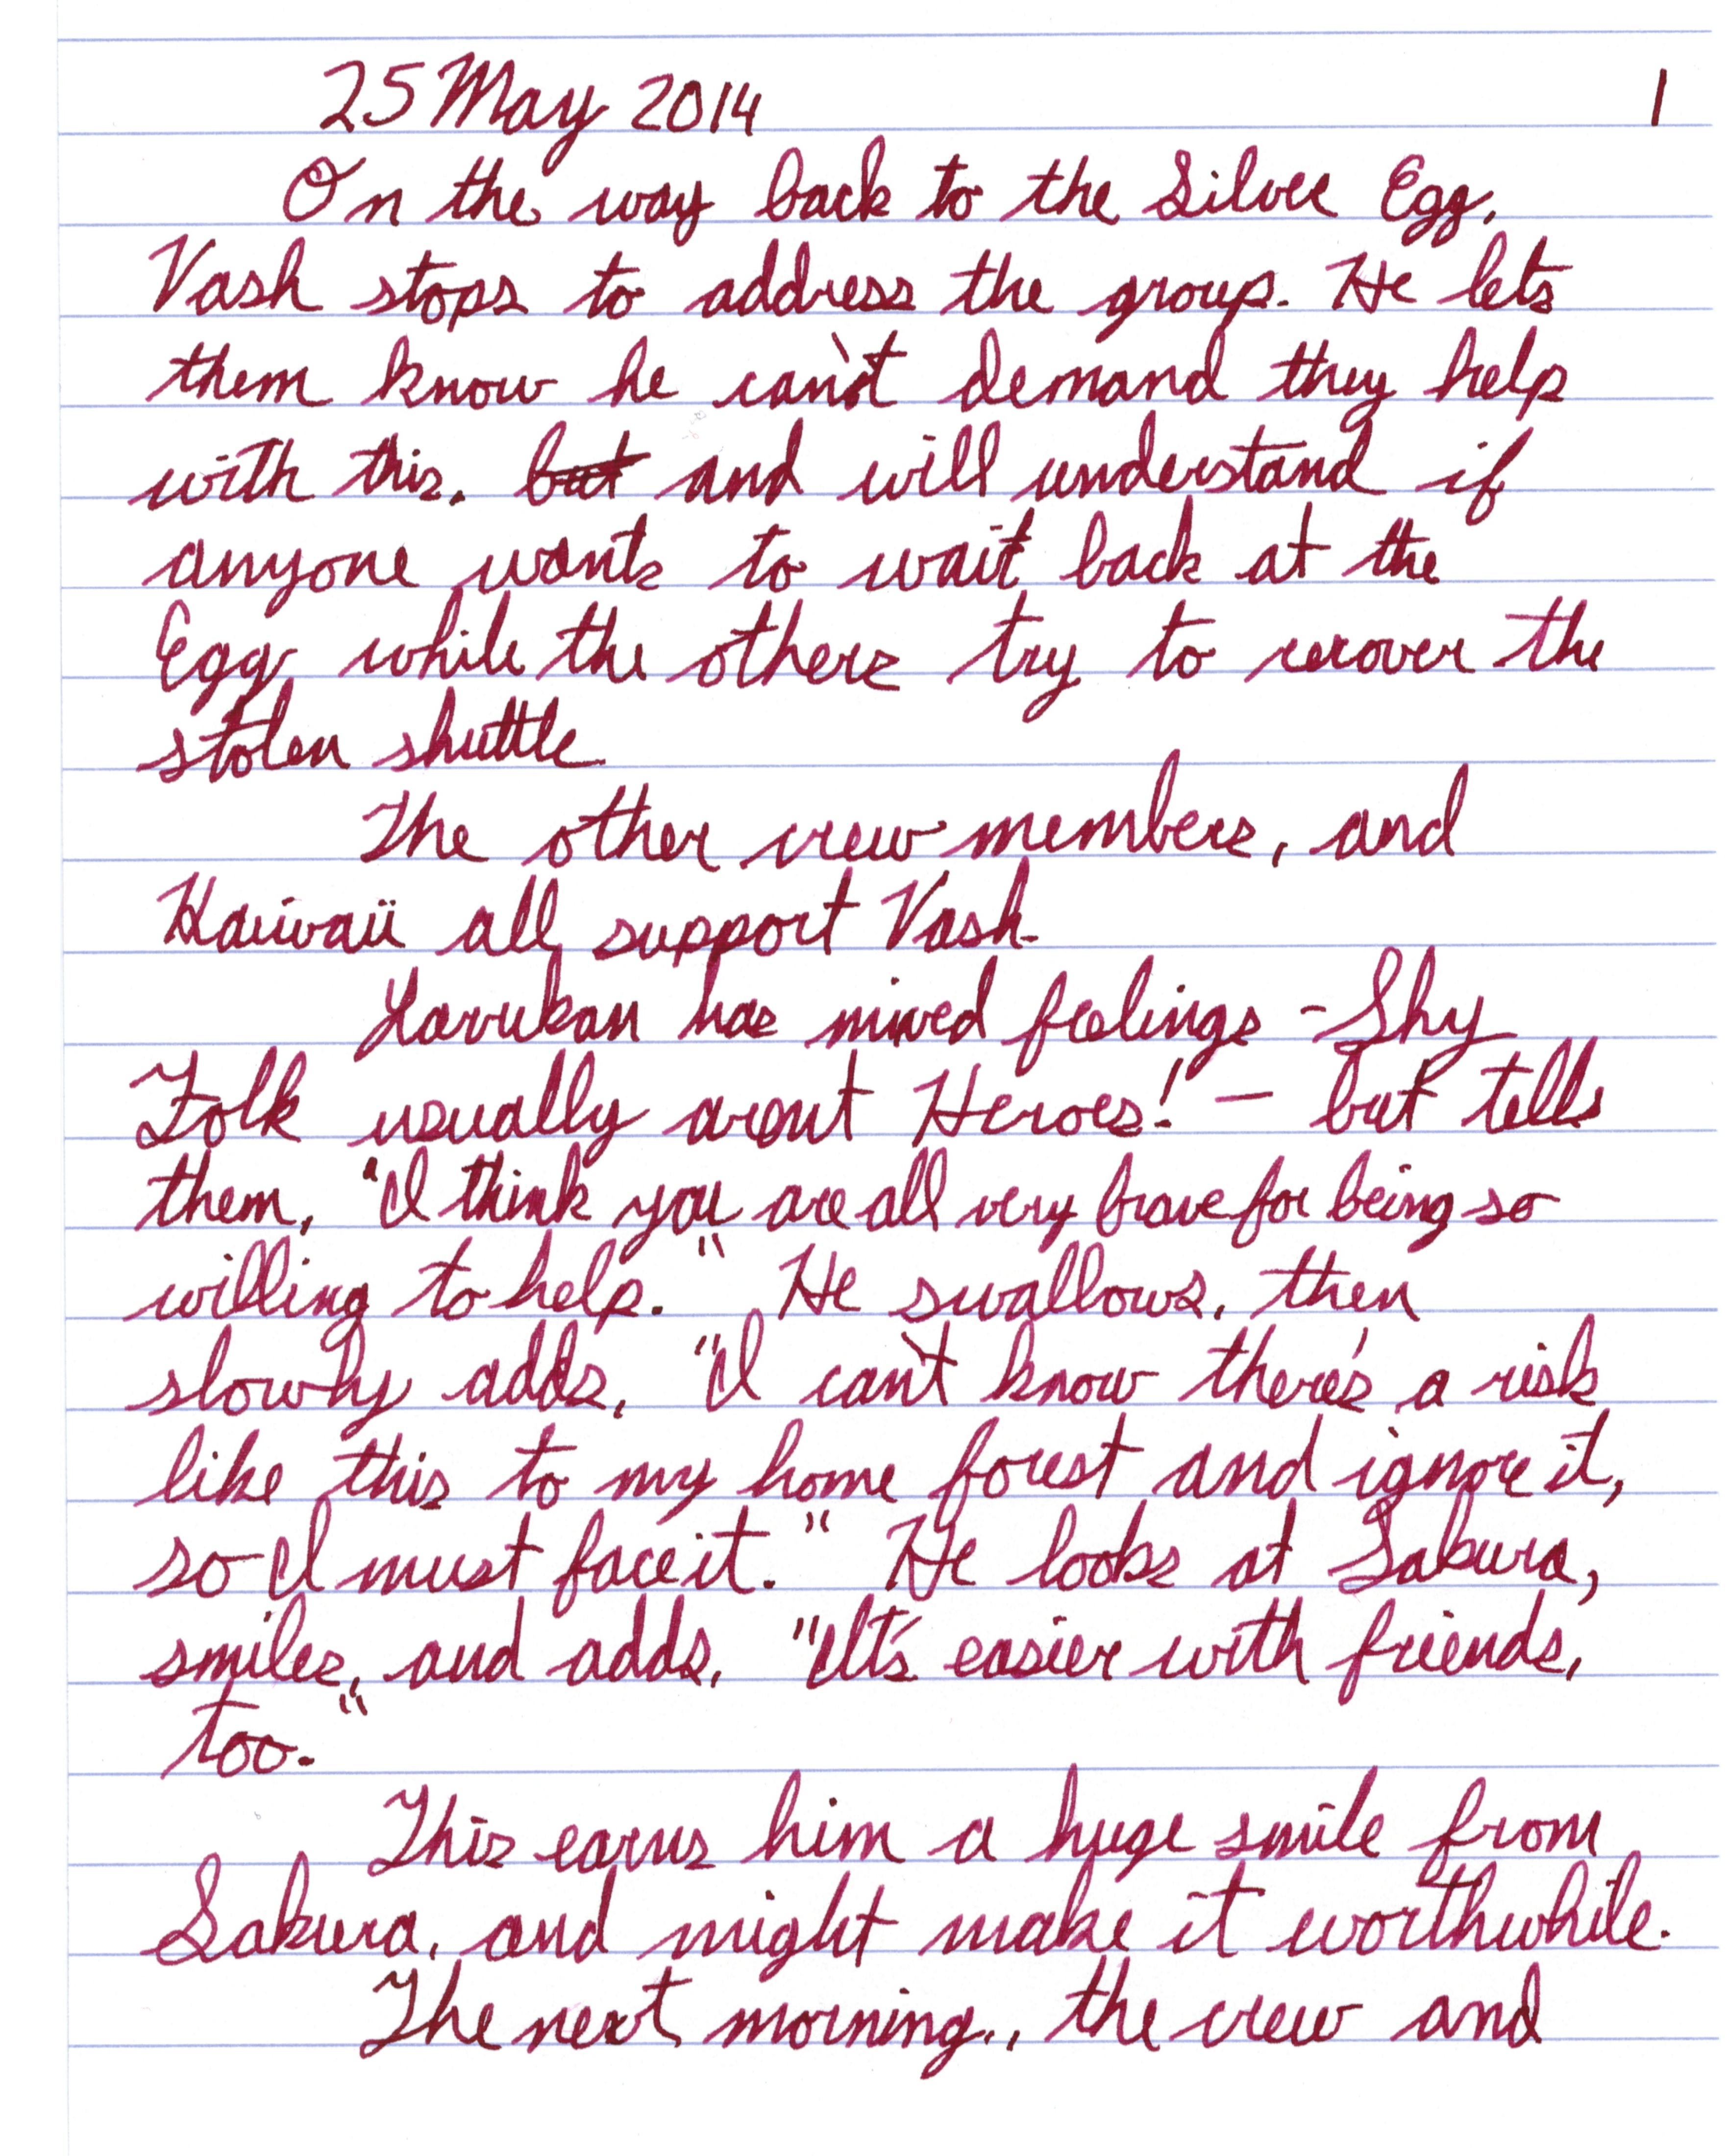 25 May 2014 1
On the way back to the Silver Egg,
Vash stops to address the group. He lets
them know he can't demand they help
with this, but and will understand if
anyone wants to wait back at the
Egg while the others try to recover the
stolen shuttle.
The other crew members, and
Kaiwaii all support Vash.
Larukan has mixed feelings - Shy
Folk usually arent Heroes! - but tells
them, "I think you are all very brave for being so
willing to help." He swallows, then
slowly adds, "I can't know there's a risk
like this to my home forest and ignore it,
so I must face it." He looks at Sakura,
smiles, and adds, "It's easier with friends,
too."
This earns him a huge smile from
Sakura, and might make it worthwhile.
The next morning, the crew and